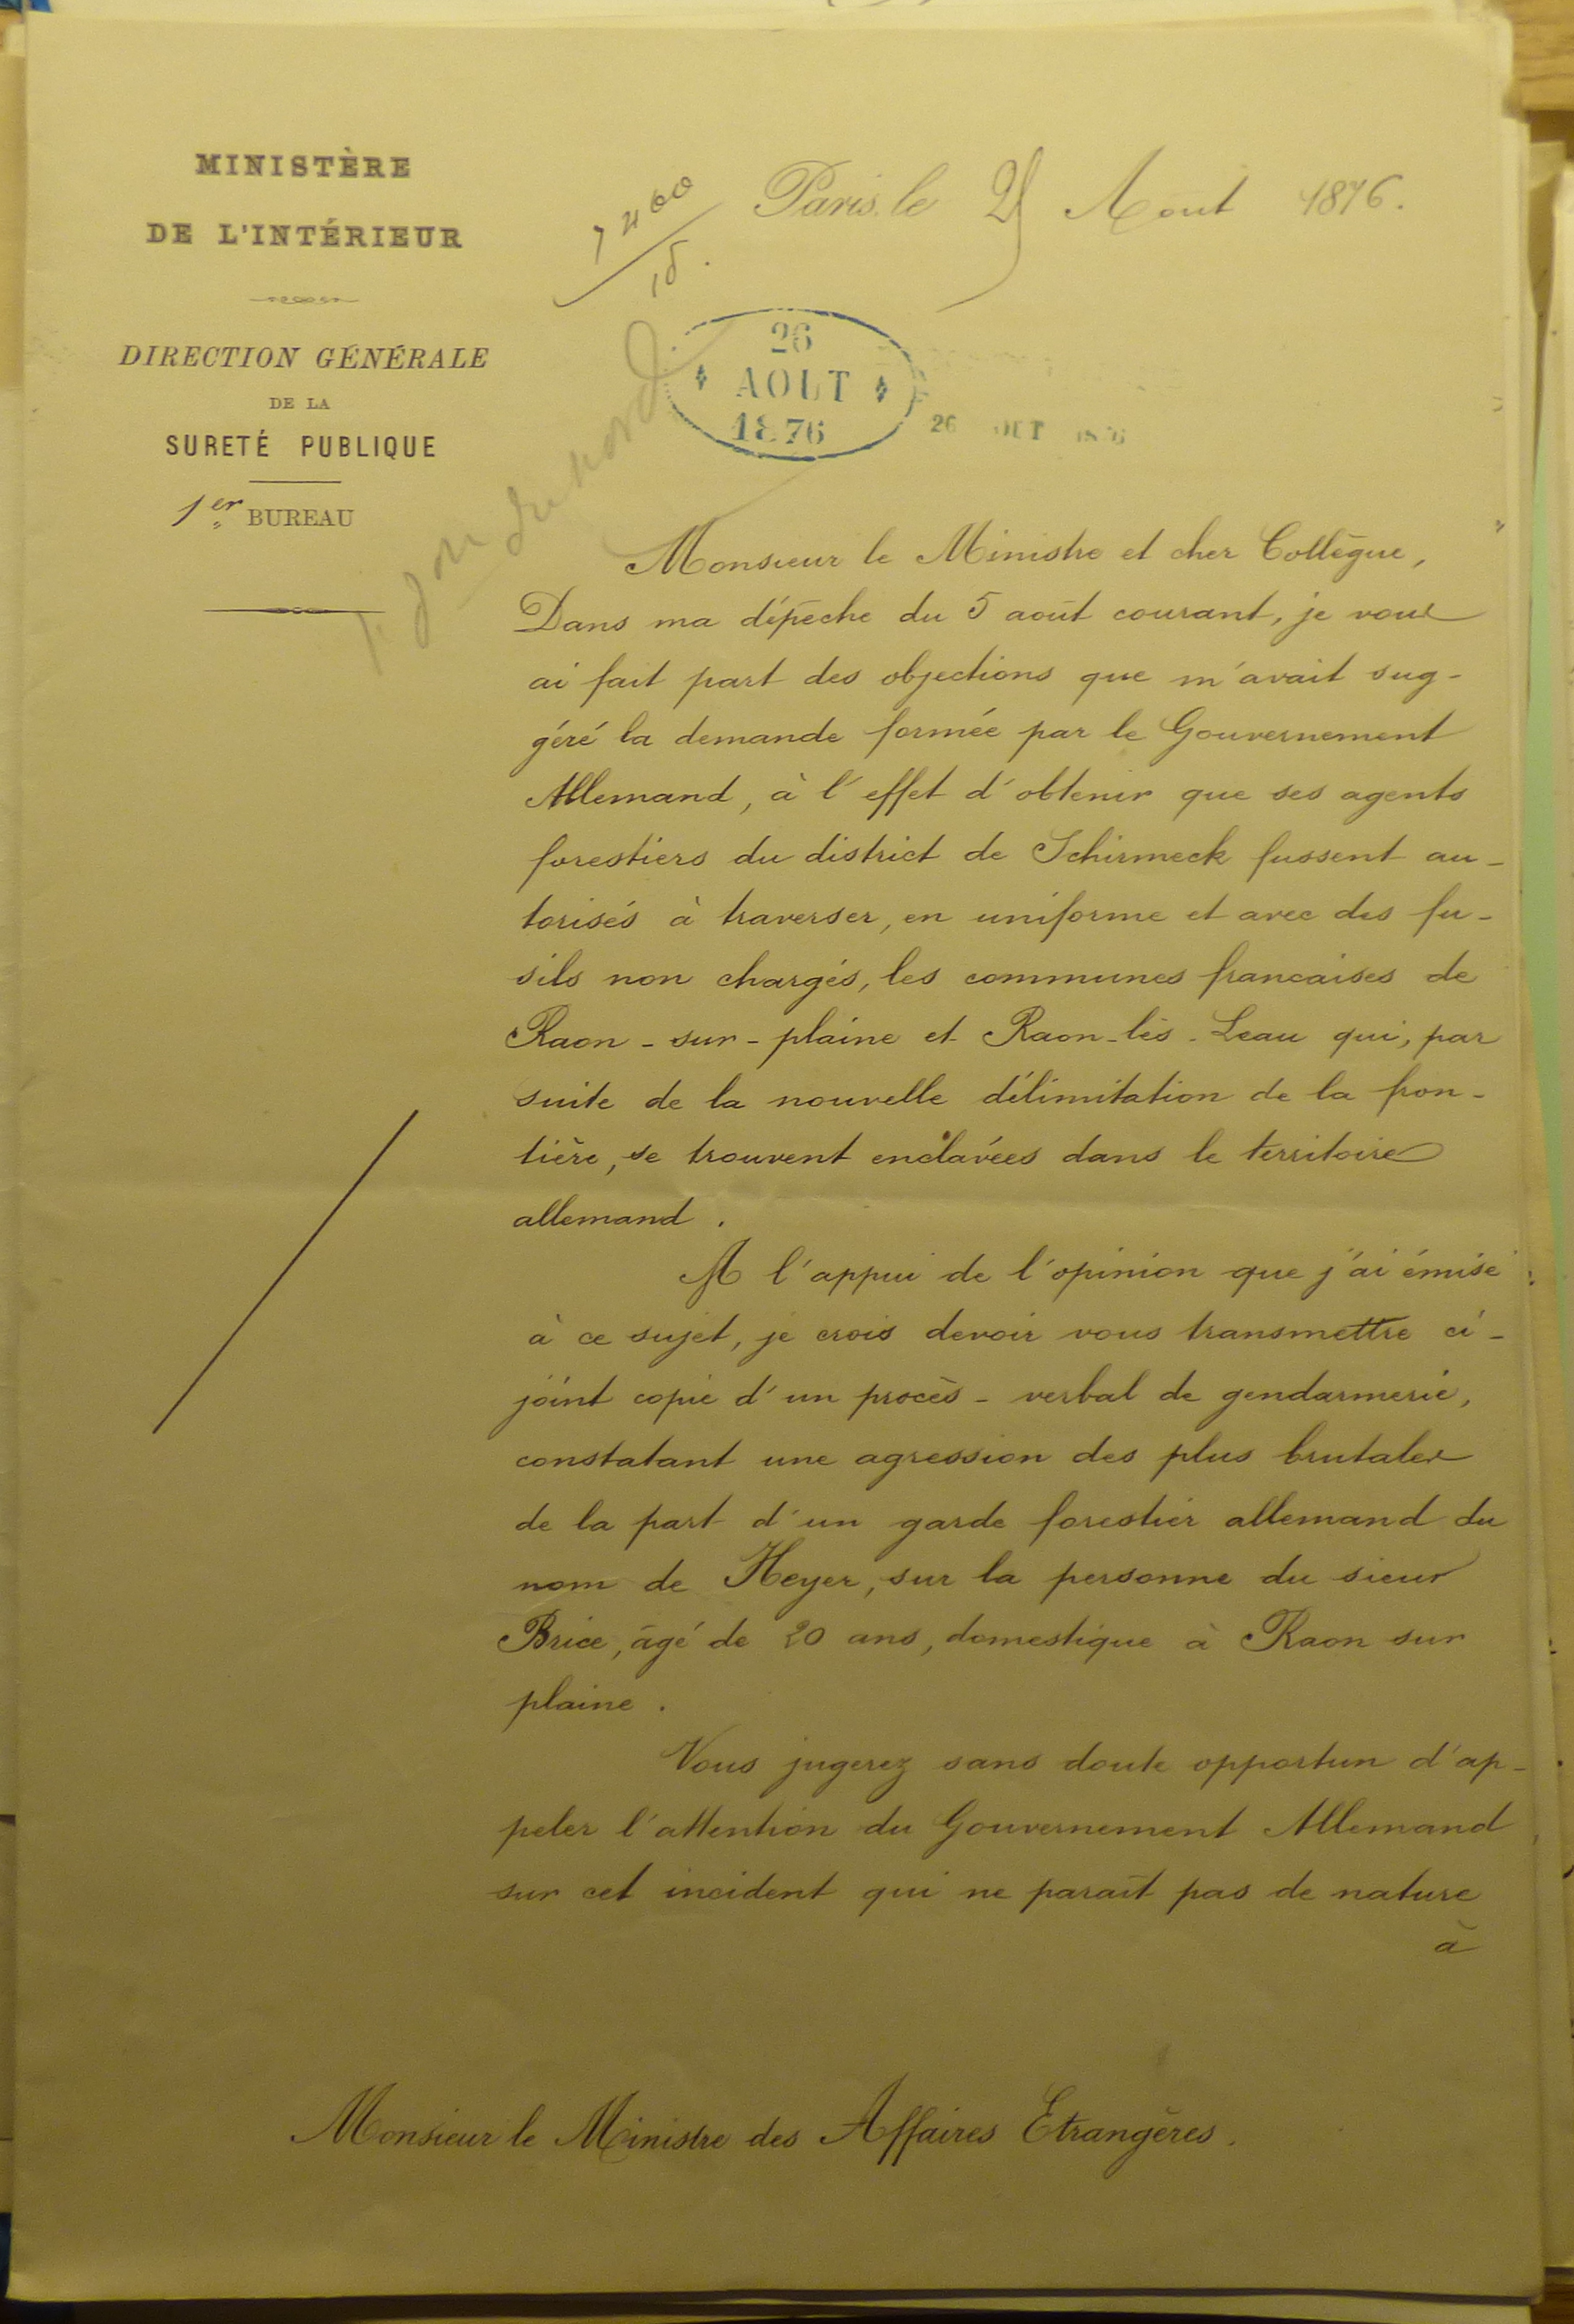 MINISTÈRE
DE L'INTÉRIEUR
DIRECTION GÉNÉRALE
DE LA
SURETÉ PUBLIQUE
1er BUREAU
Paris, le Aout 1876.
26
AOUT
1876
26
Monsieur le Ministre et cher Collègue,
Dans ma dépêche du 5 août courant, je vous
ai fait part des objections que m'avait sug-
géré la demande formée par le Gouvernement
Allemand, à l'effet d'obtenir que ses agents
forestiers du district de Schirmeck fussent au-
torisés à traverser, en uniforme et avec des fu-
sils non chargés, les communes francaises de
Raon-sur-plaine et Raon-lès-Leau qui, par
suite de la nouvelle délimitation de la fron-
tière, se trouvent enclavées dans le territoire
allemand.
A l'appui de l'opinion que j'ai émise
à ce sujet, je crois devoir vous transmettre ci-
joint copie d'un procès-verbal de gendarmerie,
constatant une agression des plus brutales
de la part d'un garde forestier allemand du
nom de Heyer, sur la personne du sieur
Brice, âgé de 20 ans, domestique à Raon sur
plaine.
Vous jugerez sans doute opportun d'ap-
peler l'attention du Gouvernement Allemand
sur cet incident qui ne paraît pas de nature
à
Monsieur le Ministre des Affaires Etrangères.